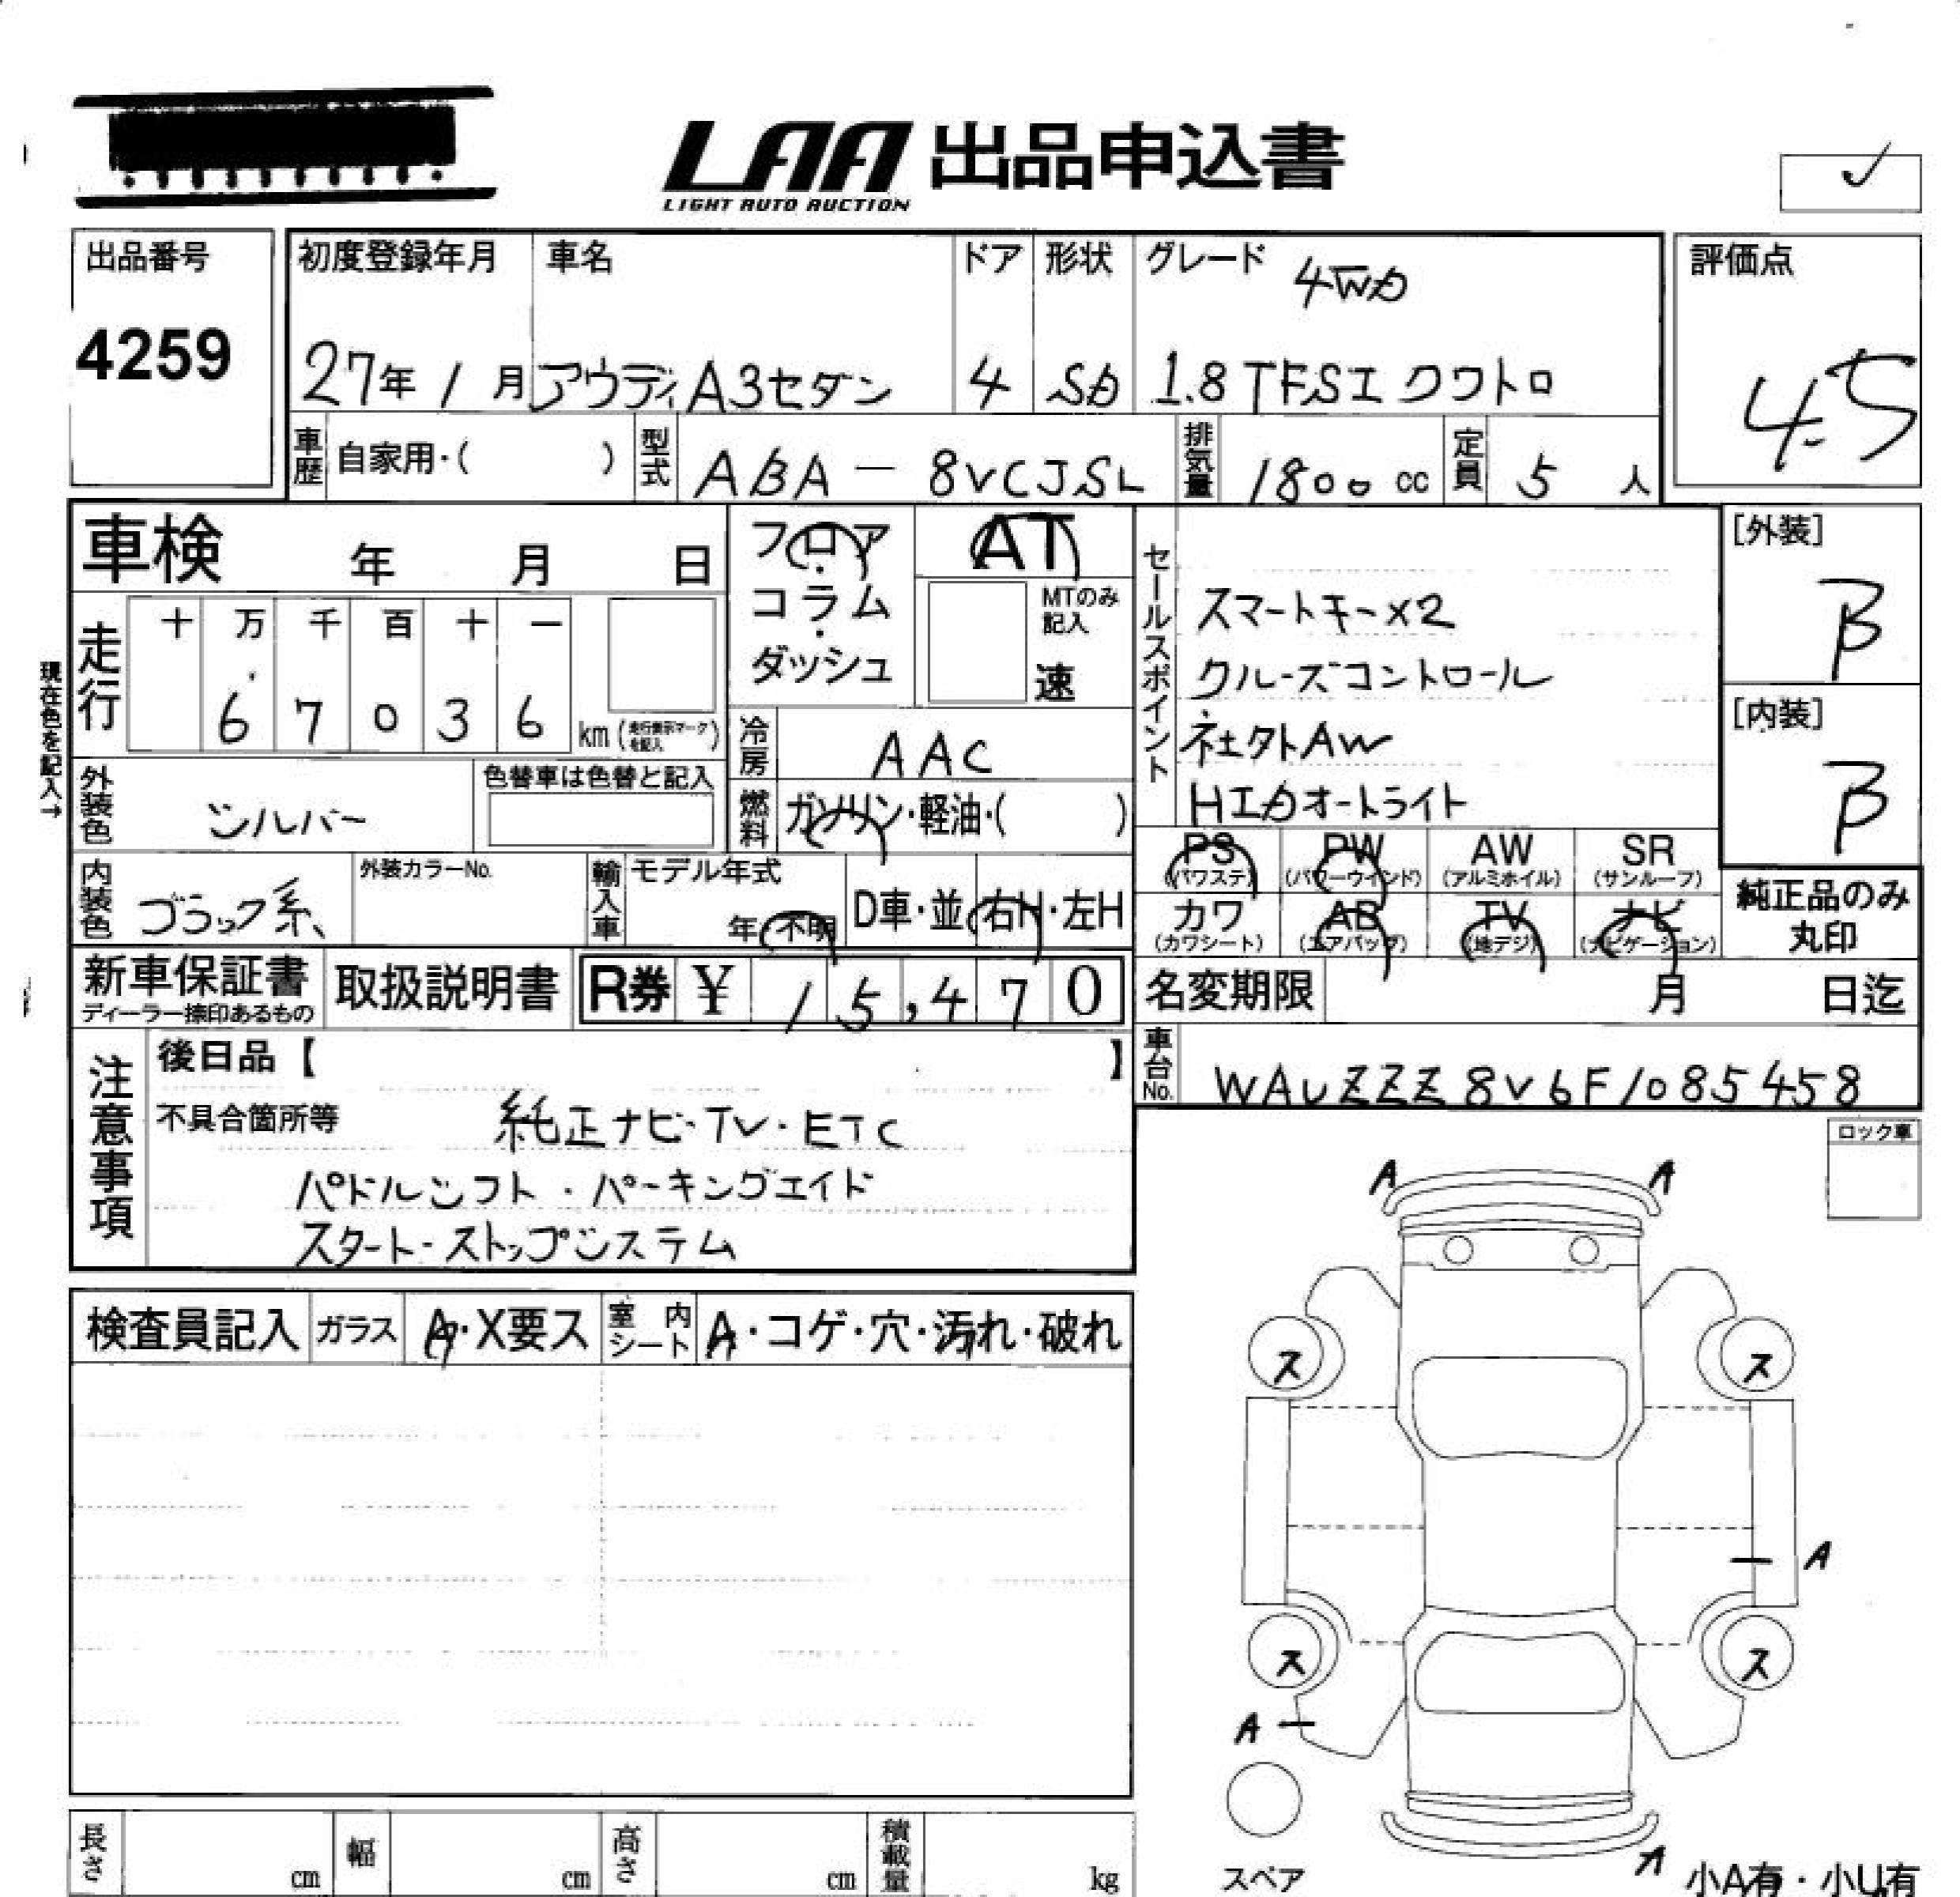 LAA 出品申込書
LIGHT AUTO AUCTION
出品番号
4259
初度登録年月
27年 1月
車名
アウディA3セダン
ドア
4
形状
SD
グレード 4WD
1.8 TFSI クワトロ
評価点
4.5
車歴 自家用・( )
型式 ABA - 8VCJSL
排気量 1800 cc
定員 5 人
車検 年 月 日
フロア・コラム・ダッシュ
AT
MTのみ記入
速
セールスポイント
スマートキーx2
クルーズコントロール
社外AW
HID オートライト
[外装]
B
[内装]
B
現在色を記入→
走行
十 万 千 百 十 一
6 7 0 3 6 km (走行表示マークを記入)
冷房 AAC
外装色 シルバー
色替車は色替と記入
燃料 ガソリン・軽油・( )
内装色 ブラック系
外装カラーNo.
輸入車
モデル年式
年・不明
D車・並 右H・左H
PS (パワステ)
PW (パワーウインド)
AW (アルミホイル)
SR (サンルーフ)
カワ (カワシート)
AB (エアバッグ)
TV (地デジ)
ナビ (ナビゲーション)
純正品のみ
丸印
新車保証書
ディーラー捺印あるもの
取扱説明書
R券 ¥ 15,470
名変期限 月 日迄
車台No. WAUZZZ8V6F1085458
注意事項
後日品【 】
不具合箇所等 純正ナビ・TV・ETC
パドルシフト・パーキングエイド
スタート・ストップシステム
ロック車
検査員記入
ガラス A・X要ス
室内シート A・コゲ・穴・汚れ・破れ
A A
ス ス
A
ス ス
A
スペア
A
小A有・小U有
長さ cm
幅 cm
高さ cm
積載量 kg